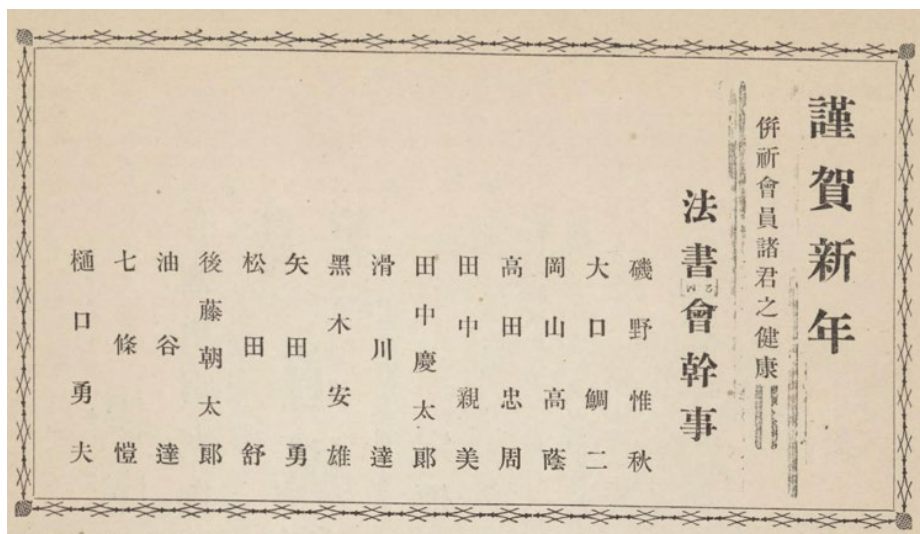 謹賀新年
併祈會員諸君之健康
法書會幹事
磯野惟秋
大口鯛二
岡山高蔭
高田忠周
田中親美
田中慶太郎
滑川達
黑木安雄
矢田勇
松田舒
後藤朝太郎
油谷達
七條愷
樋口勇夫